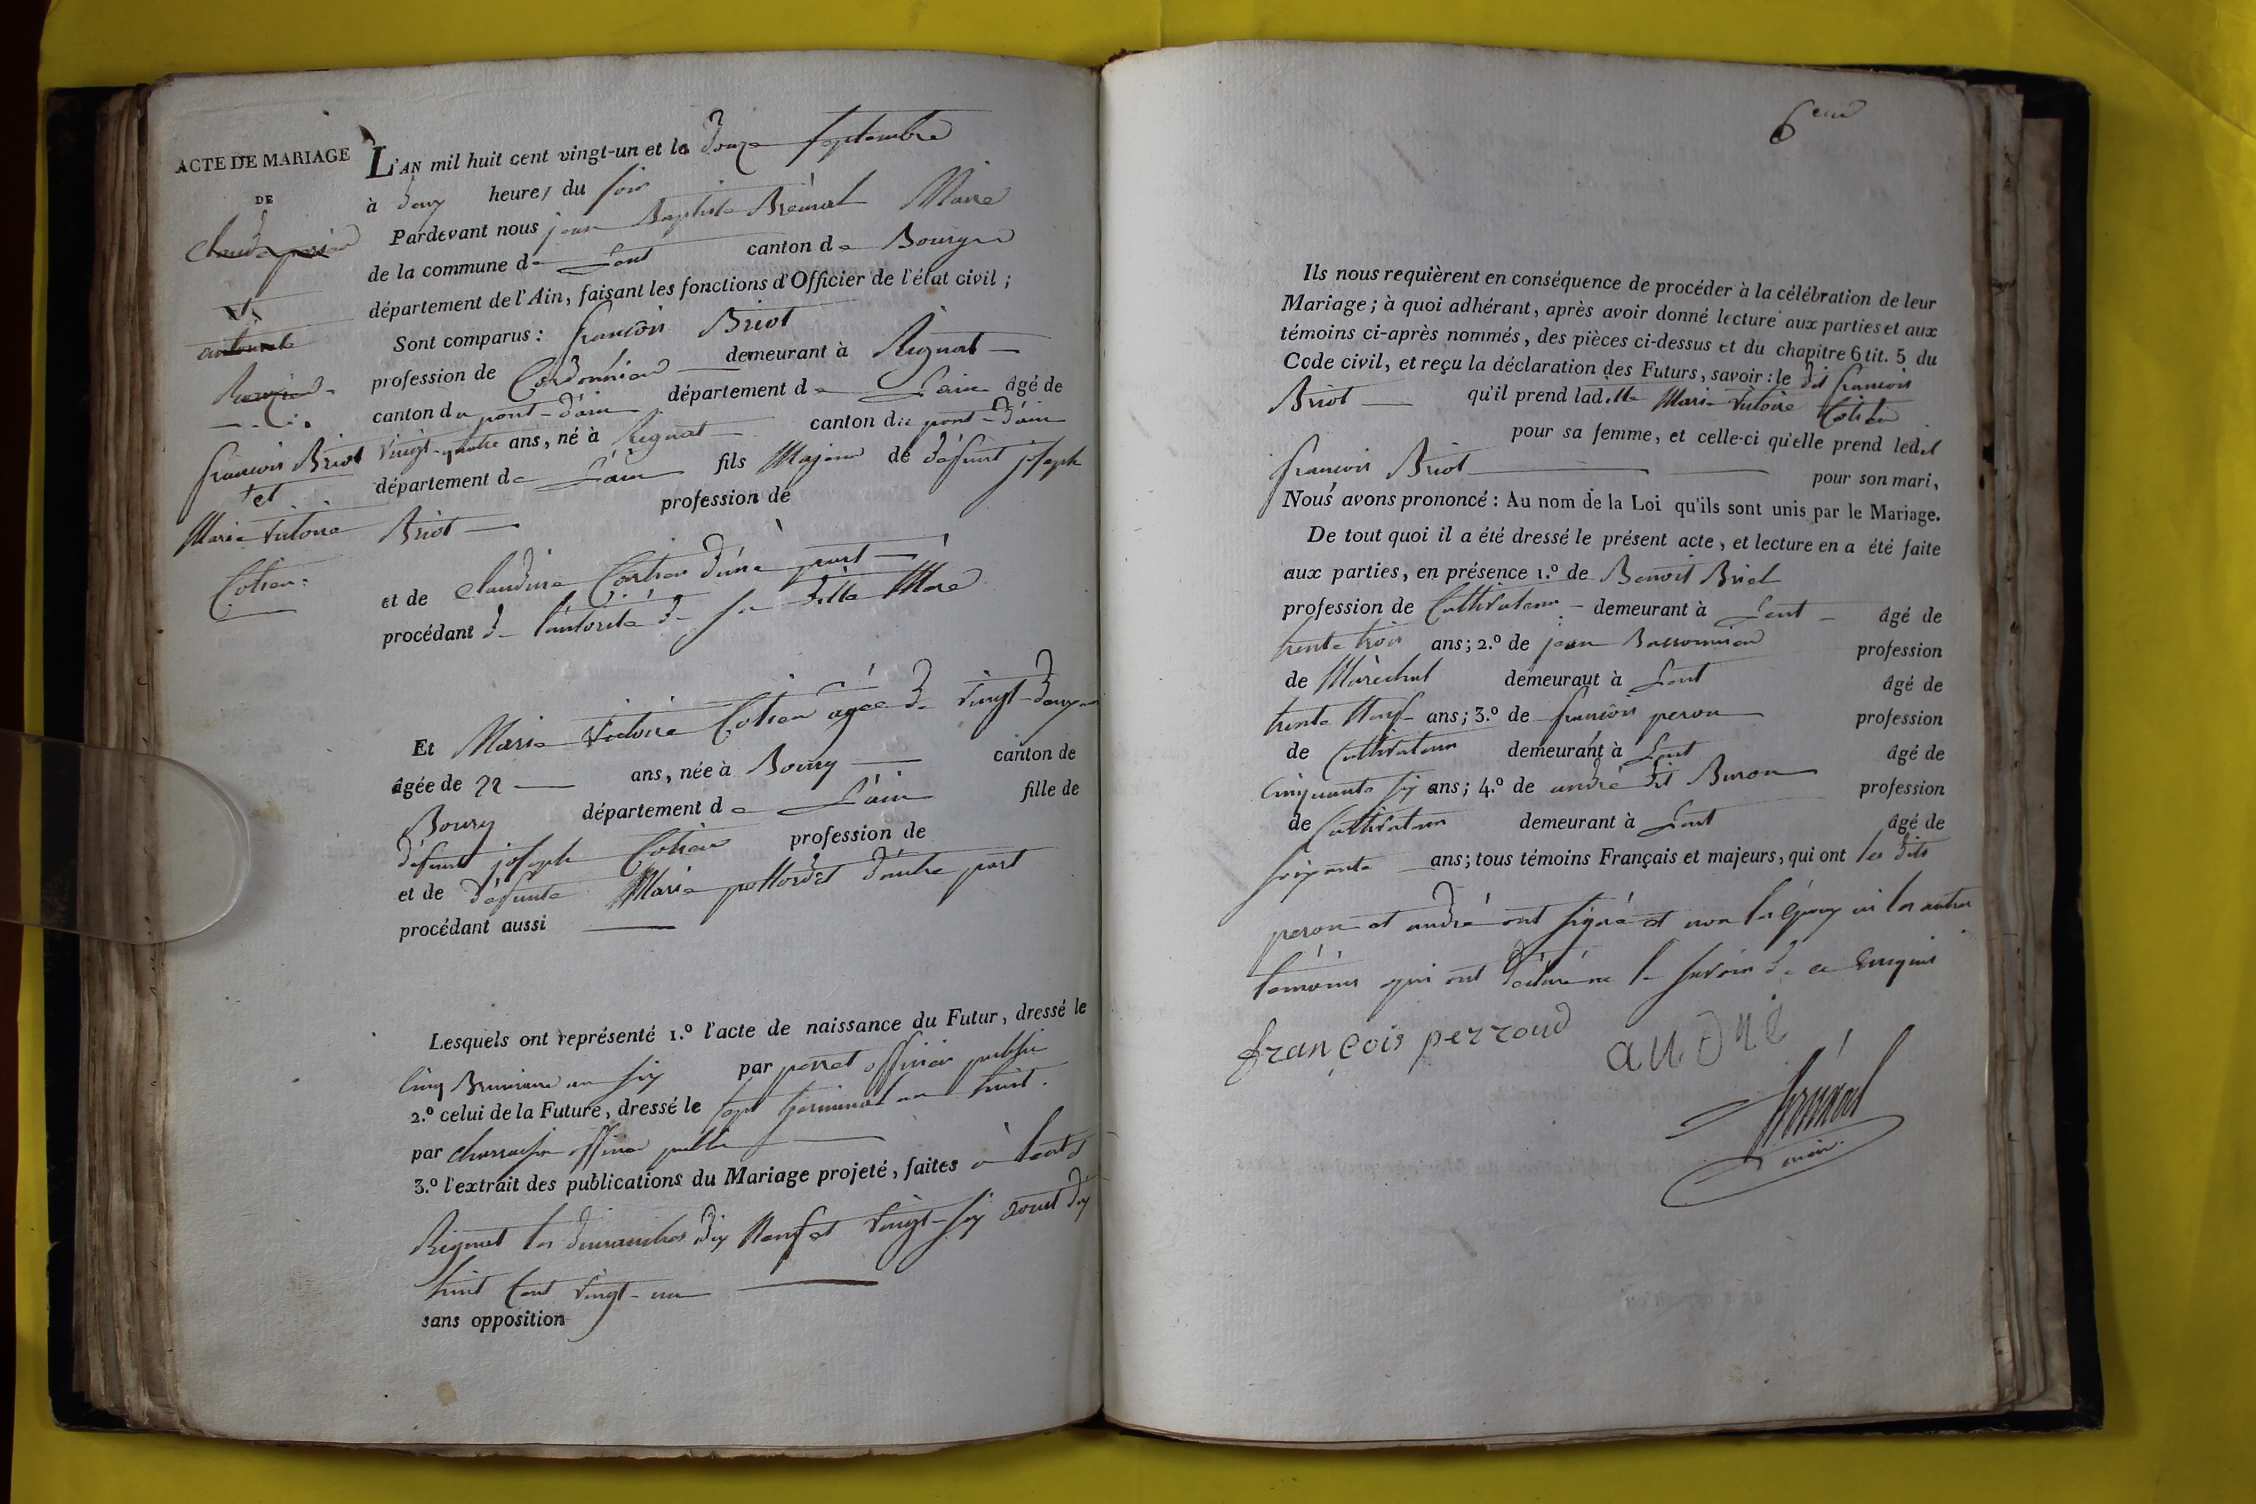 ACTE DE MARIAGE
DE
Claude
et
antoinete
françois Briot
et
Marie victoire
Cotien
L'AN mil huit cent vingt-un et le douze septembre
à deux heures du soir
Pardevant nous jean Baptiste Maire
de la commune de Lent canton de Bourg
département de l'Ain, faisant les fonctions d'Officier de l'état civil ;
Sont comparus : françois Briot
profession de Cordonnier demeurant à Rignat
canton du pont-d'ain département de L'ain âgé de
vingt-quatre ans, né à Rignat canton du pont-d'ain
département de L'ain fils Majeur de défunt joseph
Briot profession de
et de claudine d'une part
procédant de l'autorité de sa ditte Mere
Et Marie victoire Cotien agée de vingt-deux
âgée de 22 ans, née à Bourg canton de
Bourg département de L'ain fille de
défunt joseph Cotien profession de
et de défunte Marie d'autre part
procédant aussi
Lesquels ont représenté 1.º l'acte de naissance du Futur, dressé le
cinq Brumaire an six par officier public
2.º celui de la Future, dressé le sept germinal an huit.
par officier public
3.º l'extrait des publications du Mariage projeté, faites à lent et
Rignat les dimanches dix Neuf et vingt-six aout dix
huit Cent vingt-un
sans opposition
6eme
Ils nous requièrent en conséquence de procéder à la célébration de leur
Mariage ; à quoi adhérant, après avoir donné lecture aux parties et aux
témoins ci-après nommés, des pièces ci-dessus et du chapitre 6 tit. 5 du
Code civil, et reçu la déclaration des Futurs, savoir : le dit françois
Briot qu'il prend laditte Marie victoire Cotien
pour sa femme, et celle-ci qu'elle prend ledit
françois Briot pour son mari,
Nous avons prononcé : Au nom de la Loi qu'ils sont unis par le Mariage.
De tout quoi il a été dressé le présent acte, et lecture en a été faite
aux parties, en présence 1.º de Benoit
profession de Cultivateur demeurant à Lent âgé de
trente trois ans ; 2.º de jean profession
de Maréchal demeurant à Lent âgé de
trente Neuf ans ; 3.º de françois peron profession
de Cultivateur demeurant à Lent âgé de
Cinquante six ans ; 4.º de andré dit Buron profession
de Cultivateur demeurant à Lent âgé de
soixante ans ; tous témoins Français et majeurs, qui ont les dits
peron et andré ont signé et non les Epoux ni les autres
temoins qui ont déclaré ne le savoir de ce Enquis
françois perroud
andré
maire